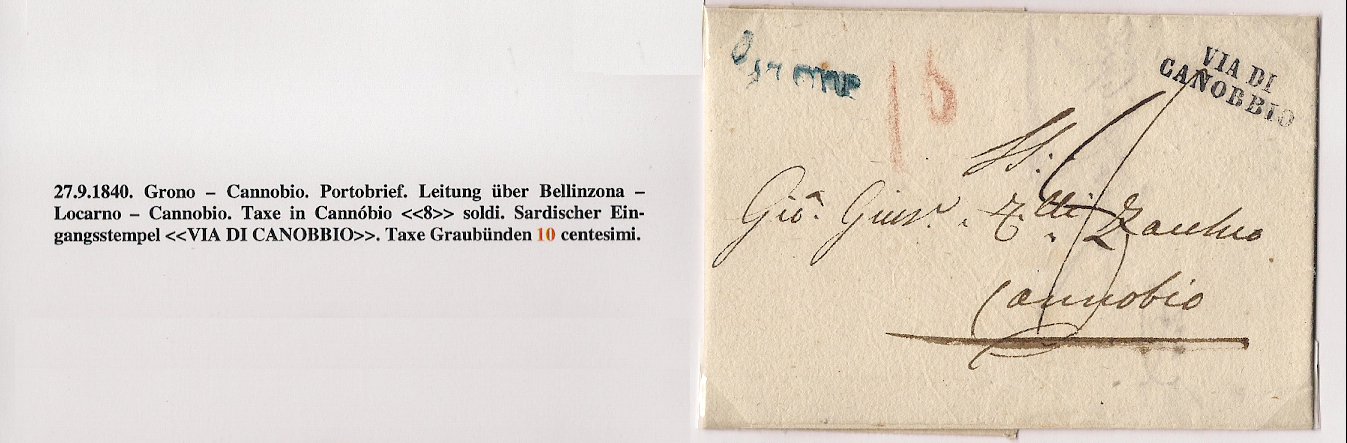 27.9.1840. Grono – Cannobio. Portobrief. Leitung über Bellinzona –
Locarno – Cannobio. Taxe in Cannóbio <<8>> soldi. Sardischer Ein-
gangsstempel <<VIA DI CANOBBIO>>. Taxe Graubünden 10 centesimi.
VIA DI
CANOBBIO
Gio. Gius.
Cannobio